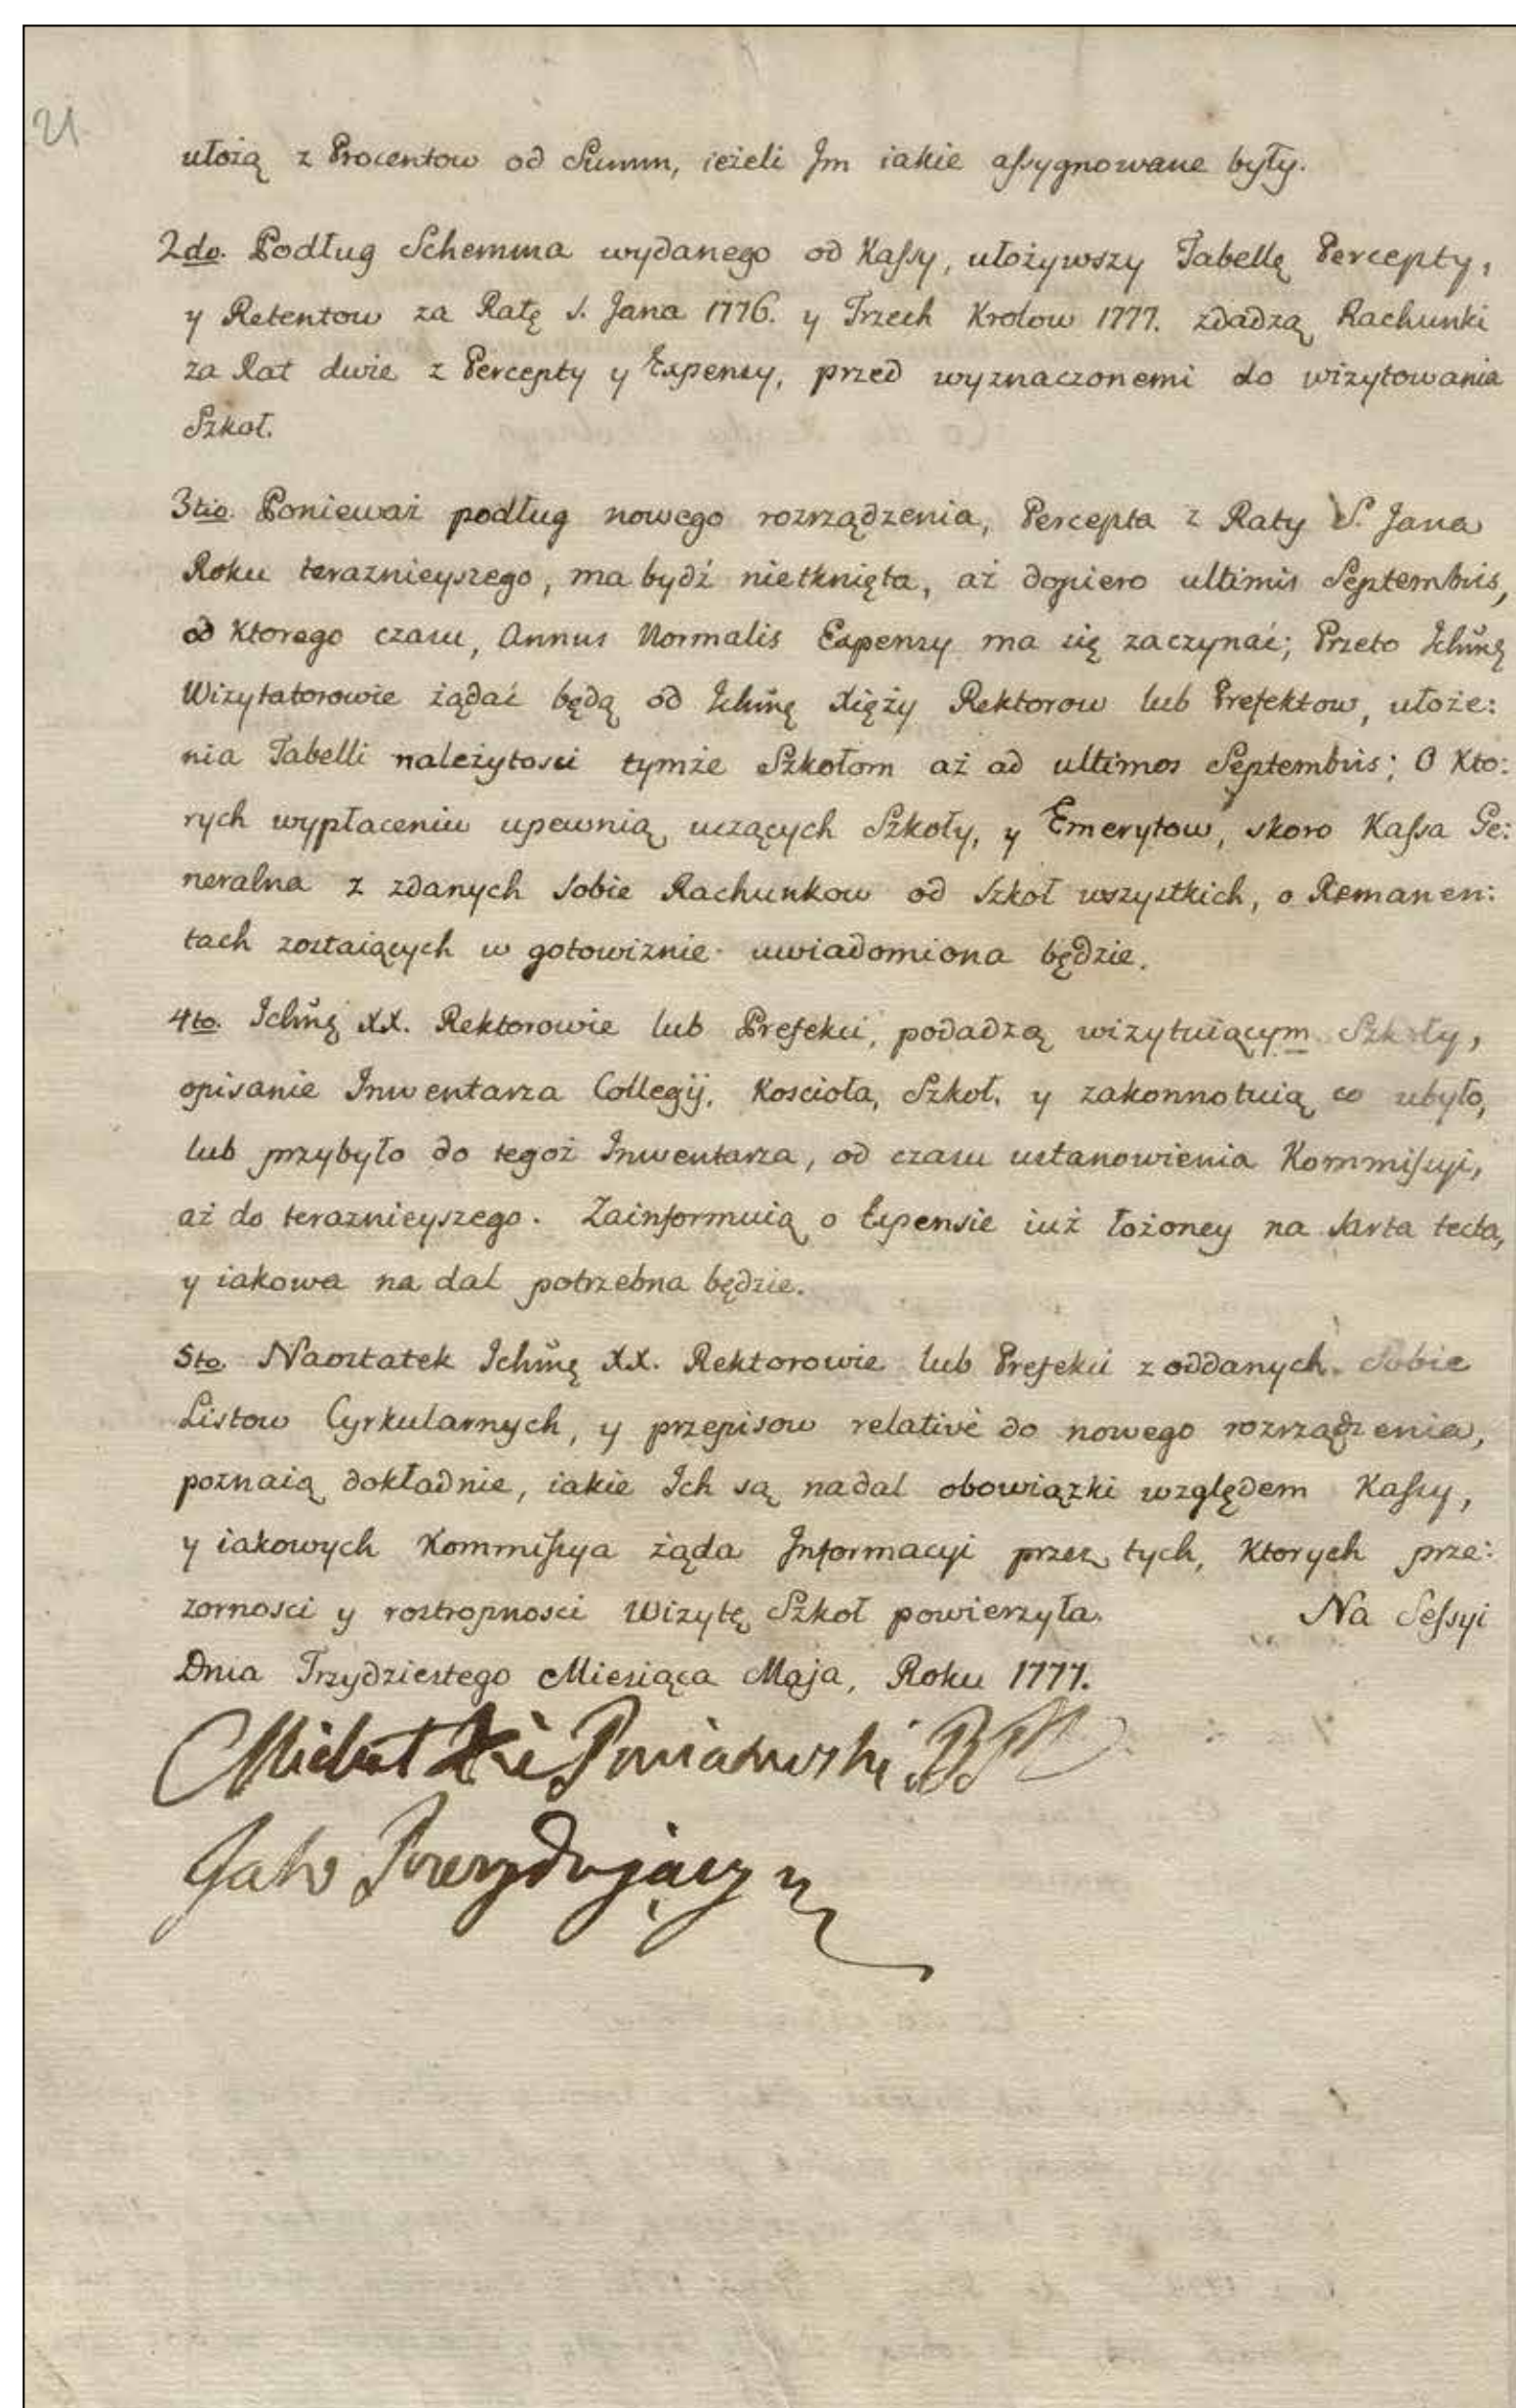 21
ułożą z Procentow od Summ, ieżeli Jm iakie assygnowane były.
2do. Podług Schemma wydanego od Kassy, ułożywszy Tabellę Percepty,
y Retentow za Ratę S. Jana 1776. y Trzech Krolow 1777. zdadzą Rachunki
za Rat dwie z Percepty y Expensy, przed wyznaczonemi do wizytowania
Szkoł.
3tio. Ponieważ podług nowego rozrządzenia, Percepta z Raty S. Jana
Roku teraznieyszego, ma bydź nietknięta, aż dopiero ultimis Septembris,
od Ktorego czasu, Annus Normalis Expensy ma się zaczynać; Przeto Ichmę
Wizytatorowie żądać będą od Ichmę Xięży Rektorow lub Prefektow, ułoże:
nia Tabelli należytosci tymże Szkołom aż ad ultimos Septembris; O Kto:
rych wypłaceniu upewnią uczących Szkoły, y Emerytow, skoro Kassa Ge:
neralna z zdanych sobie Rachunkow od Szkoł wszystkich, o Remanen:
tach zostaiących w gotowiznie uwiadomiona będzie.
4to. Ichmę XX. Rektorowie lub Prefekci, podadzą wizytuiącym Szkoły,
opisanie Inwentarza Collegij, Koscioła, Szkoł, y zakonnotuią co ubyło,
lub przybyło do tegoż Inwentarza, od czasu ustanowienia Kommissyi,
aż do teraznieyszego. Zainformuią o Expensie iuż łożoney na sarta tecta,
y iakowa na dal potrzebna będzie.
5to. Naostatek Ichmę XX. Rektorowie lub Prefekci z oddanych sobie
Listow Cyrkularnych, y przepisow relativè do nowego rozrządzenia,
poznaią dokładnie, iakie Ich są nadal obowiązki względem Kassy,
y iakowych Kommissya żąda Informacyi przez tych, Ktorych prze:
zornosci y rostropnosci Wizytę Szkoł powierzyła. Na Sessyi
Dnia Trzydziestego Miesiąca Maja, Roku 1777.
Michał Xże Poniatowski BP
Jako Prezydujący